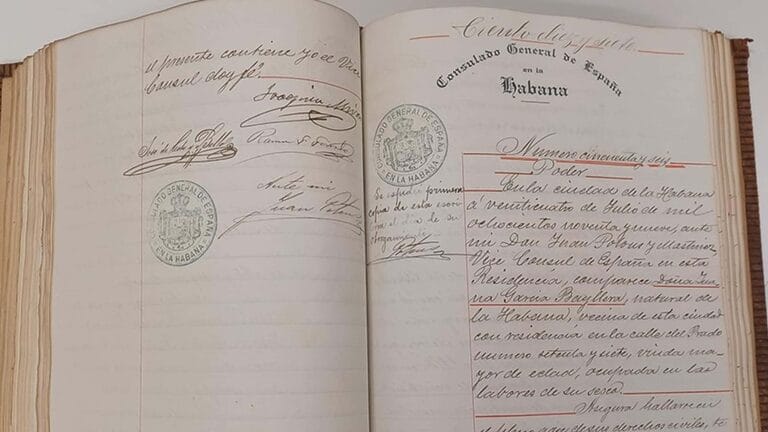 el presente contiene yo el Vice
Consul doy fé.
Joaquina
José de
Ramon
Ante mi
Juan Potous
CONSULADO GENERAL DE ESPAÑA
EN LA HABANA
Ciento diez y siete
Consulado General de España
en la
Habana
CONSULADO GENERAL DE ESPAÑA
EN LA HABANA
Se espidió primera
copia de esta escri
tura el dia de su
otorgamiento
Potous
Numero cincuenta y seis
Poder
En la ciudad de la Habana
á veinticuatro de Julio de mil
ochocientos noventa y nueve, ante
mi Don Juan Potous y Martinez
Vice Consul de España en esta
Residencia, comparece Doña Jua
na Garcia Bayllera, natural de
la Habana, vecina de esta ciudad
con residencia en la calle del Prado
numero setenta y siete, viuda ma
yor de edad, ocupada en las
labores de su sexo.
Asegura hallarse en
el pleno que de sus derechos civiles, te